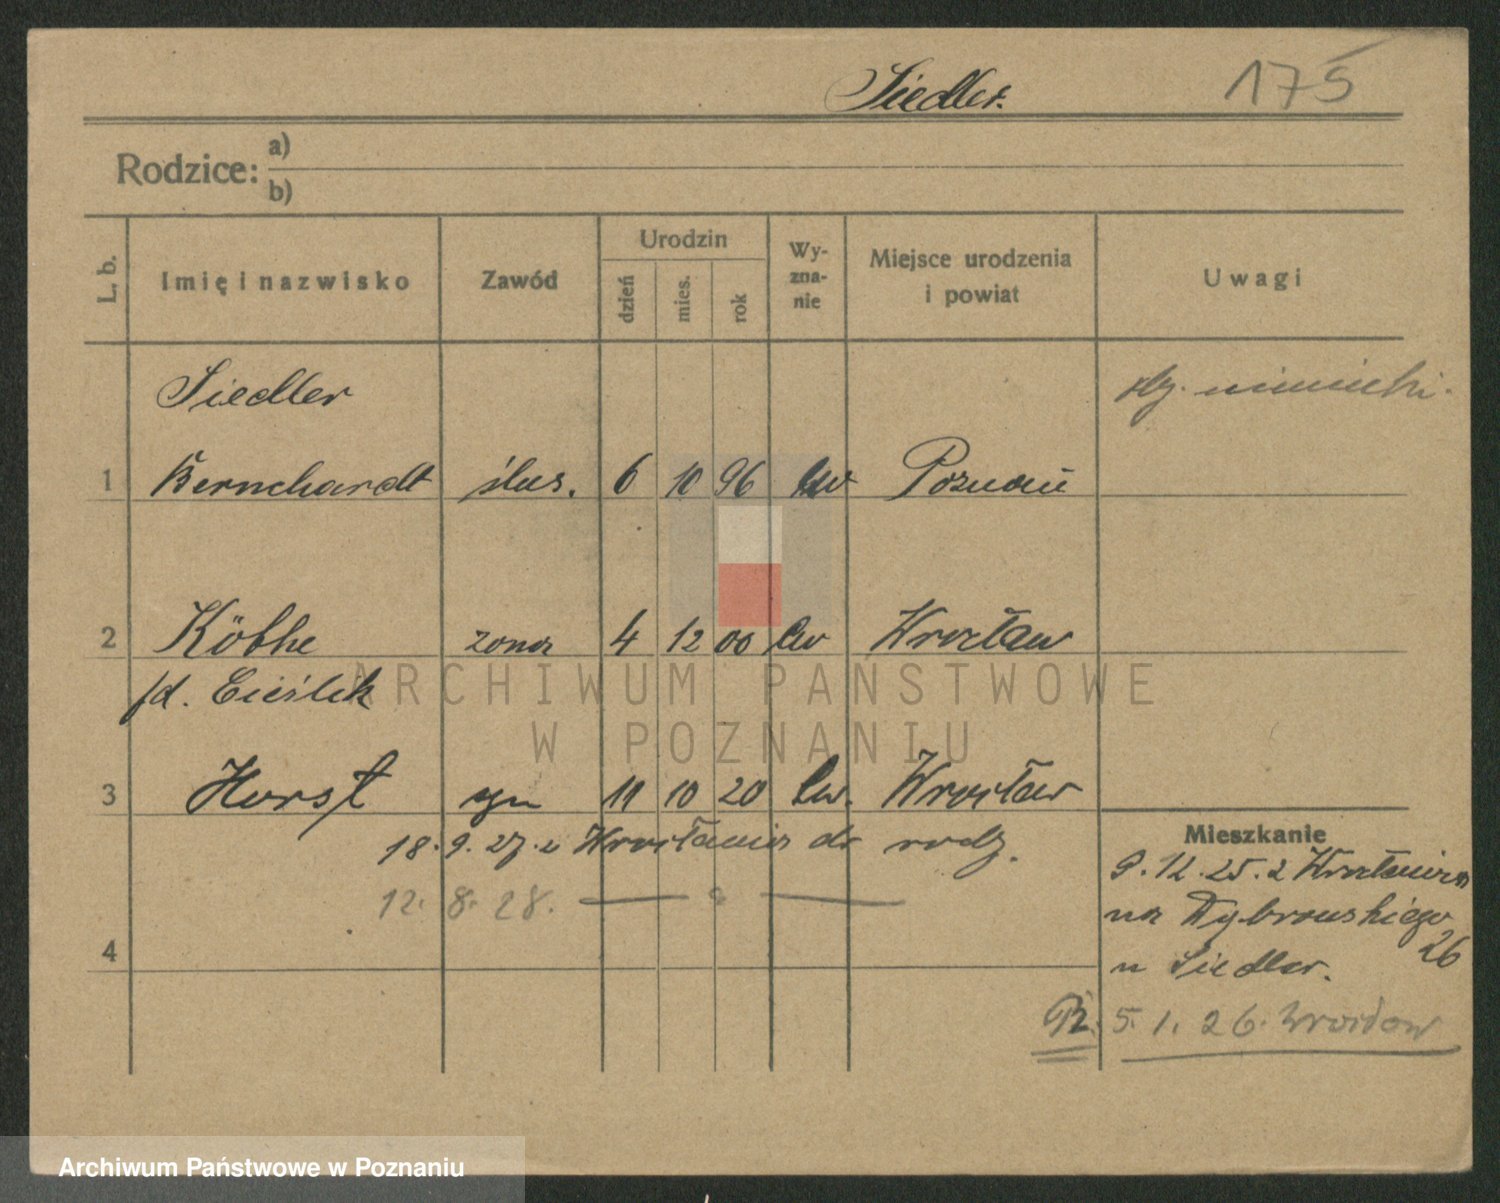 Siedler. 175
Rodzice: a)
b)
L. b.
Imię i nazwisko
Zawód
Urodzin
dzień
mies.
rok
Wy-
zna-
nie
Miejsce urodzenia
i powiat
Uwagi
Siedler
niemiecki.
1 Bernchardt ślus. 6 10 96 ew Poznań
2 Köthe zona 4 12 00 ew Wrocław
fd. Cieślik
3 Horst syn 11 10 20 ew. Wrocław
18. 9. 27. z Wrocławia do rodz.
12. 8. 28.
4
Mieszkanie
9. 12. 25. z Wrocławia
na Dybrowskiego
26
u Siedler.
5. 1. 26. Wrocław
ARCHIWUM PAŃSTWOWE
W POZNANIU
Archiwum Państwowe w Poznaniu